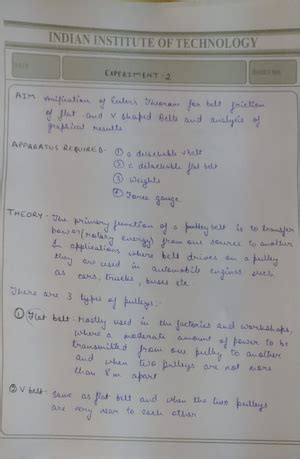 INDIAN INSTITUTE OF TECHNOLOGY
DATE
SHEET NO.
EXPERIMENT - 2
AIM - Verification of Euler's Theoram for belt friction
of flat and V shaped Belts and analysis of
graphical results
APPARATUS REQUIRED - ① a detachable v belt
② a detachable flat belt
③ Weights
④ Force gauge
THEORY - The primary function of a pulley belt is to transfer
power (rotary energy) from one source to another
In applications where belt drives on a pulley
they are used in automobile engines such
as cars, trucks, buses etc
There are 3 types of pulleys:-
① Flat belt - Mostly used in the factories and workshops,
where a moderate amount of power to be
transmitted from one pulley to another
and when two pulleys are not more
than 8 m apart
② V belt - Same as flat belt and when the two pulleys
are very near to each other